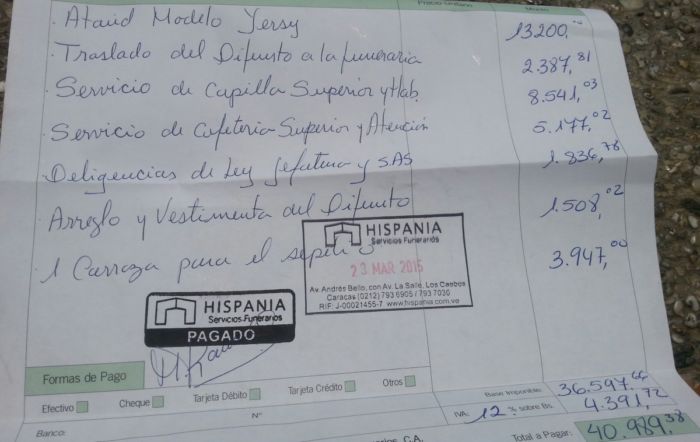 Precio Unitario Monto
. Ataud Modelo Jersy 13200,00
. Traslado del Difunto a la funeraria 2.387,81
. Servicio de Capilla Superior y Hab. 8.541,03
. Servicio de Cafeteria Superior y Atención 5.177,02
. Deligencias de Ley Jefatura y SAS 1.836,78
. Arreglo y Vestimenta del Difunto 1.508,02
. 1 Carroza para el sepelio 3.947,00
HISPANIA
Servicios Funerarios
23 MAR 2015
Av. Andrés Bello, con Av. La Salle, Los Caobos
Caracas (0212) 793 6905 / 793 7030
RIF: J-00021455-7 www.hispania.com.ve
HISPANIA
Servicios Funerarios
PAGADO
Formas de Pago
Efectivo Cheque Tarjeta Débito Tarjeta Crédito Otros
Banco: Nº
Base Imponible 36.597,66
IVA: 12 % sobre Bs. 4.391,72
Total a Pagar: 40.989,38
C.A.